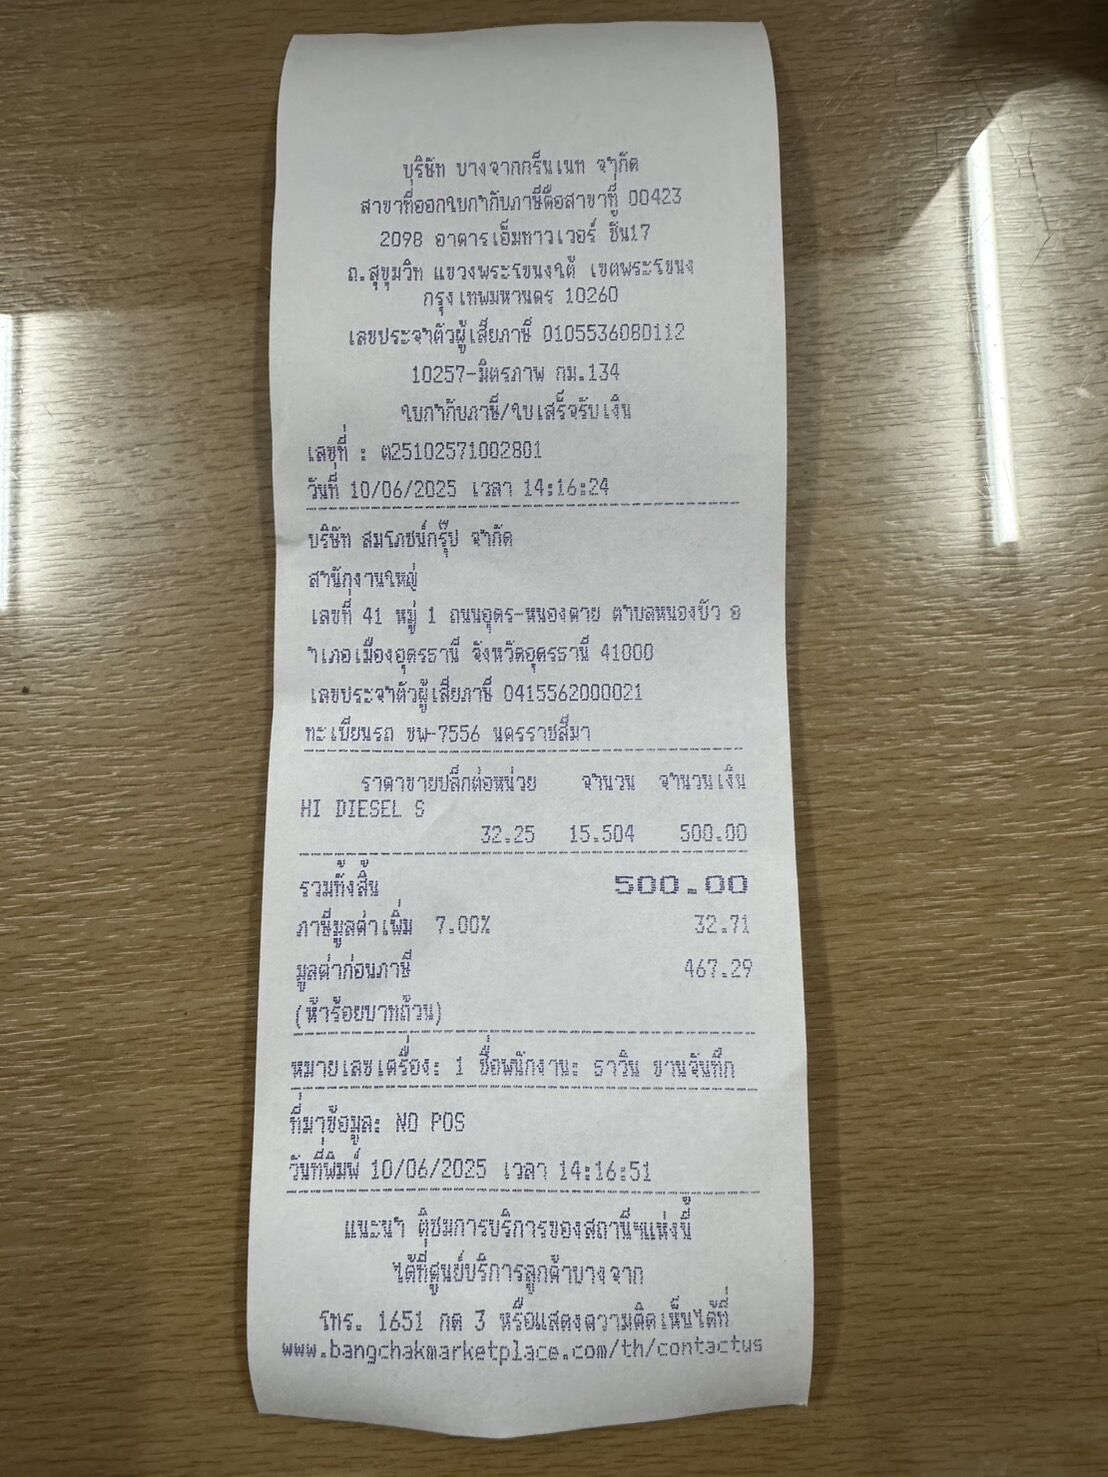 บริษัท บางจากกรีนเนท จำกัด
สาขาที่ออกใบกำกับภาษีคือสาขาที่ 00423
2098 อาคารเอ็มทาวเวอร์ ชั้น17
ถ.สุขุมวิท แขวงพระโขนงใต้ เขตพระโขนง
กรุงเทพมหานคร 10260
เลขประจำตัวผู้เสียภาษี 0105536080112
10257-มิตรภาพ กม.134
ใบกำกับภาษี/ใบเสร็จรับเงิน
เลขที่ : ต25102571002801
วันที่ 10/06/2025 เวลา 14:16:24
บริษัท สมโภชน์กรุ๊ป จำกัด
สำนักงานใหญ่
เลขที่ 41 หมู่ 1 ถนนอุดร-หนองคาย ตำบลหนองบัว อ
ำเภอเมืองอุดรธานี จังหวัดอุดรธานี 41000
เลขประจำตัวผู้เสียภาษี 0415562000021
ทะเบียนรถ ขพ-7556 นครราชสีมา
ราคาขายปลีกต่อหน่วย จำนวน จำนวนเงิน
HI DIESEL S
32.25 15.504 500.00
รวมทั้งสิ้น 500.00
ภาษีมูลค่าเพิ่ม 7.00% 32.71
มูลค่าก่อนภาษี 467.29
(ห้าร้อยบาทถ้วน)
หมายเลขเครื่อง: 1 ชื่อพนักงาน: ธาวิน ขานจันทึก
ที่มาข้อมูล: NO POS
วันที่พิมพ์ 10/06/2025 เวลา 14:16:51
แนะนำ ติชมการบริการของสถานีฯแห่งนี้
ได้ที่ศูนย์บริการลูกค้าบางจาก
โทร. 1651 กด 3 หรือแสดงความคิดเห็นได้ที่
www.bangchakmarketplace.com/th/contactus